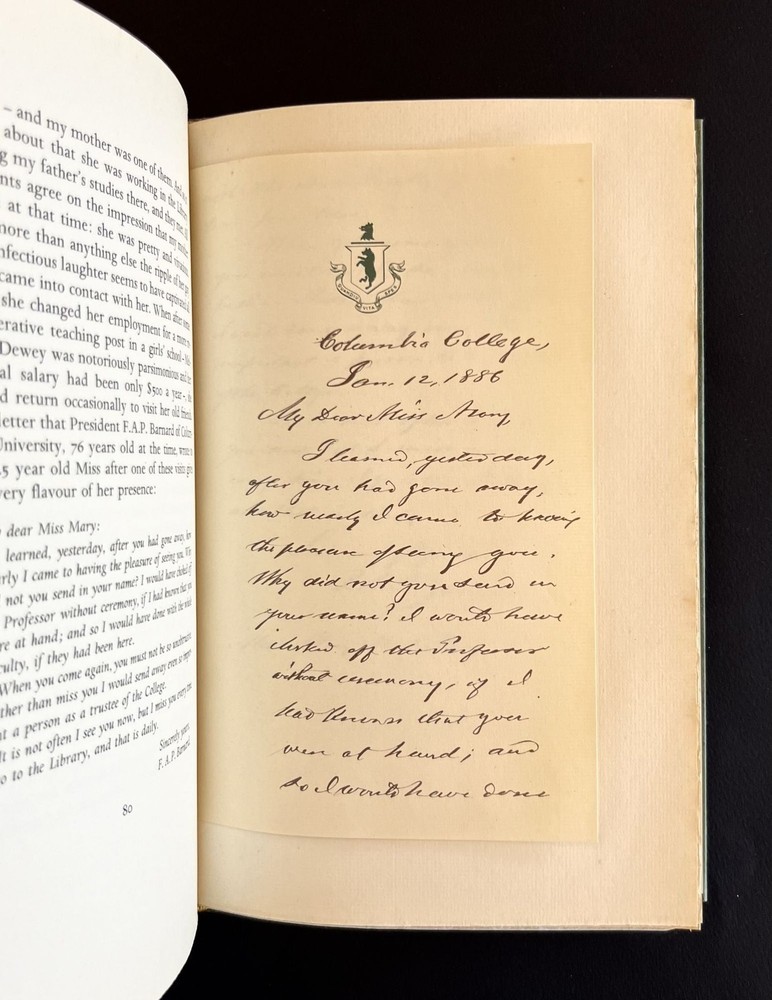 – and my mother was one of them. And
about that she was working in the Library
g my father's studies there, and they
nts agree on the impression that my mother
at that time: she was pretty and vivacious
more than anything else the ripple of her
nfectious laughter seems to have captivated all
came into contact with her. When after some
she changed her employment for a more
erative teaching post in a girls' school –
Dewey was notoriously parsimonious and her
al salary had been only $500 a year –, she
d return occasionally to visit her old friends.
letter that President F.A.P. Barnard of Columbia
University, 76 years old at the time, wrote to
5 year old Miss after one of these visits gives
very flavour of her presence:
dear Miss Mary:
learned, yesterday, after you had gone away, how
rly I came to having the pleasure of seeing you. Why
not you send in your name? I would have choked off
Professor without ceremony, if I had known that you
re at hand; and so I would have done with the whole
culty, if they had been here.
When you come again, you must not be so
ther than miss you I would send away even so
t a person as a trustee of the College.
It is not often I see you now, but I miss you every time
o to the Library, and that is daily.
Sincerely yours,
F.A.P. Barnard
80
VITA
Columbia College,
Jan. 12, 1886
My Dear Miss Mary,
I learned, yesterday,
after you had gone away,
how nearly I came to having
the pleasure of seeing you.
Why did not you send in
your name? I would have
choked off the Professor
without ceremony, if I
had known that you
were at hand; and
so I would have done